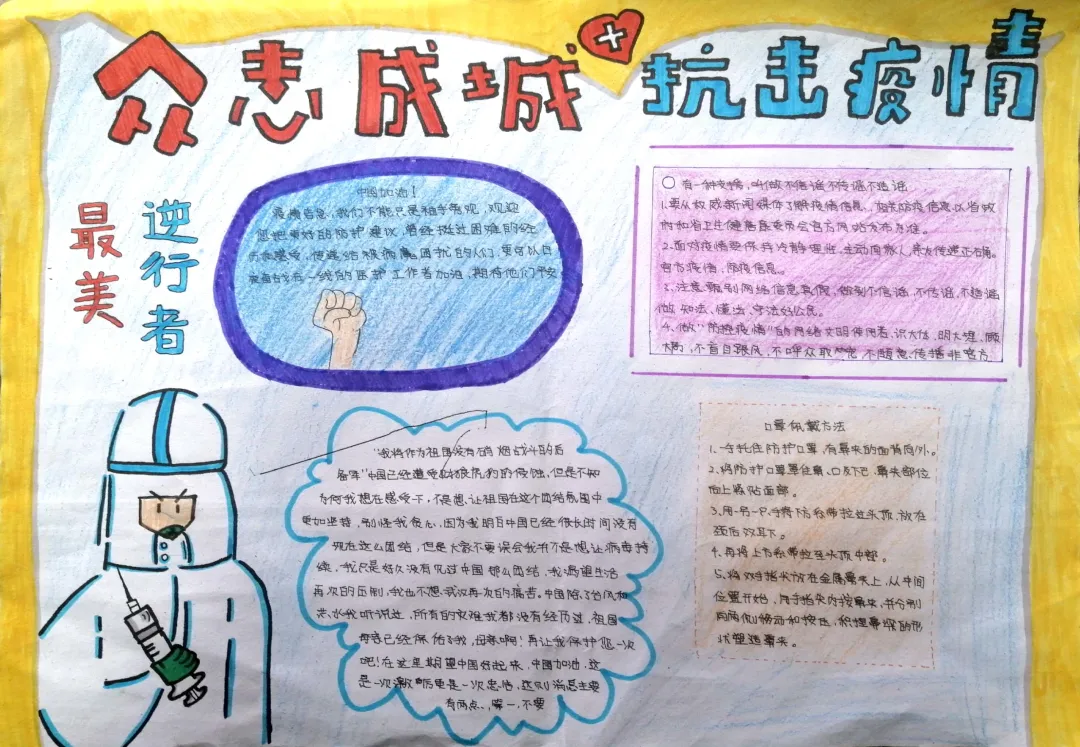 众志成城 抗击疫情
最美
逆行者
中国加油！
疫情当急，我们不能只是袖手旁观，欢迎
您把更好的防护建议 曾经挺过困难的经
的人们，更可以自
在一线的医护工作者加油，期待他们平安
有一种支援，叫做不信谣不传谣不造谣
1.要从权威新闻媒体了解疫情信息、相关防疫信息以省政
府和省卫生健康委员会官方网站发布为准。
2.面对疫情要保持冷静理性，主动向家人、亲友传递正确
官方疫情，防疫信息。
3.注意甄别网络信息真假，做到不信谣、不传谣、不造谣
做知法、懂法、守法好公民。
4.做“防控疫情”的网络文明使用者，识大体，明大理，顾
大局，不盲目跟风，不哗众取宠，不随意传播非官方
“我将作为祖国没有硝烟战斗的后
备军”中国已经遭受豺狼虎豹的侵蚀，但是不知
为何我想在感受下，不是想让祖国在这个团结氛围中
更加坚持，别怪我狠心，因为我明白中国已经很长时间没有
现在这么团结，但是大家不要误会我并不是想让病毒持
续，我只是好久没有见过中国那么团结，我渴望生活
再次的压制，我也不想武汉再次的痛苦。中国除了台风和
洪水我听说过，所有的灾难我都没有经历过，祖国
母亲已经保佑我，母亲啊！再让我保护您一次
吧！在这里期望中国好起来，中国加油，这
是一次激励更是一次忠告，这则消息主要
有两点、第一，不要
口罩佩戴方法
1.一手托住防护口罩，有鼻夹的面背向外。
2.将防护口罩罩住鼻、口及下巴，鼻夹部位
向上紧贴面部。
3.用另一只手将下方系带拉过头顶，放在
颈后双耳下。
4.再将上方系带拉至头顶中部。
5.将双手指尖放在金属鼻夹上，从中间
位置开始，用手指向内按鼻夹，并分别
向两侧移动和按压，根据鼻梁的形
状塑造鼻夹。